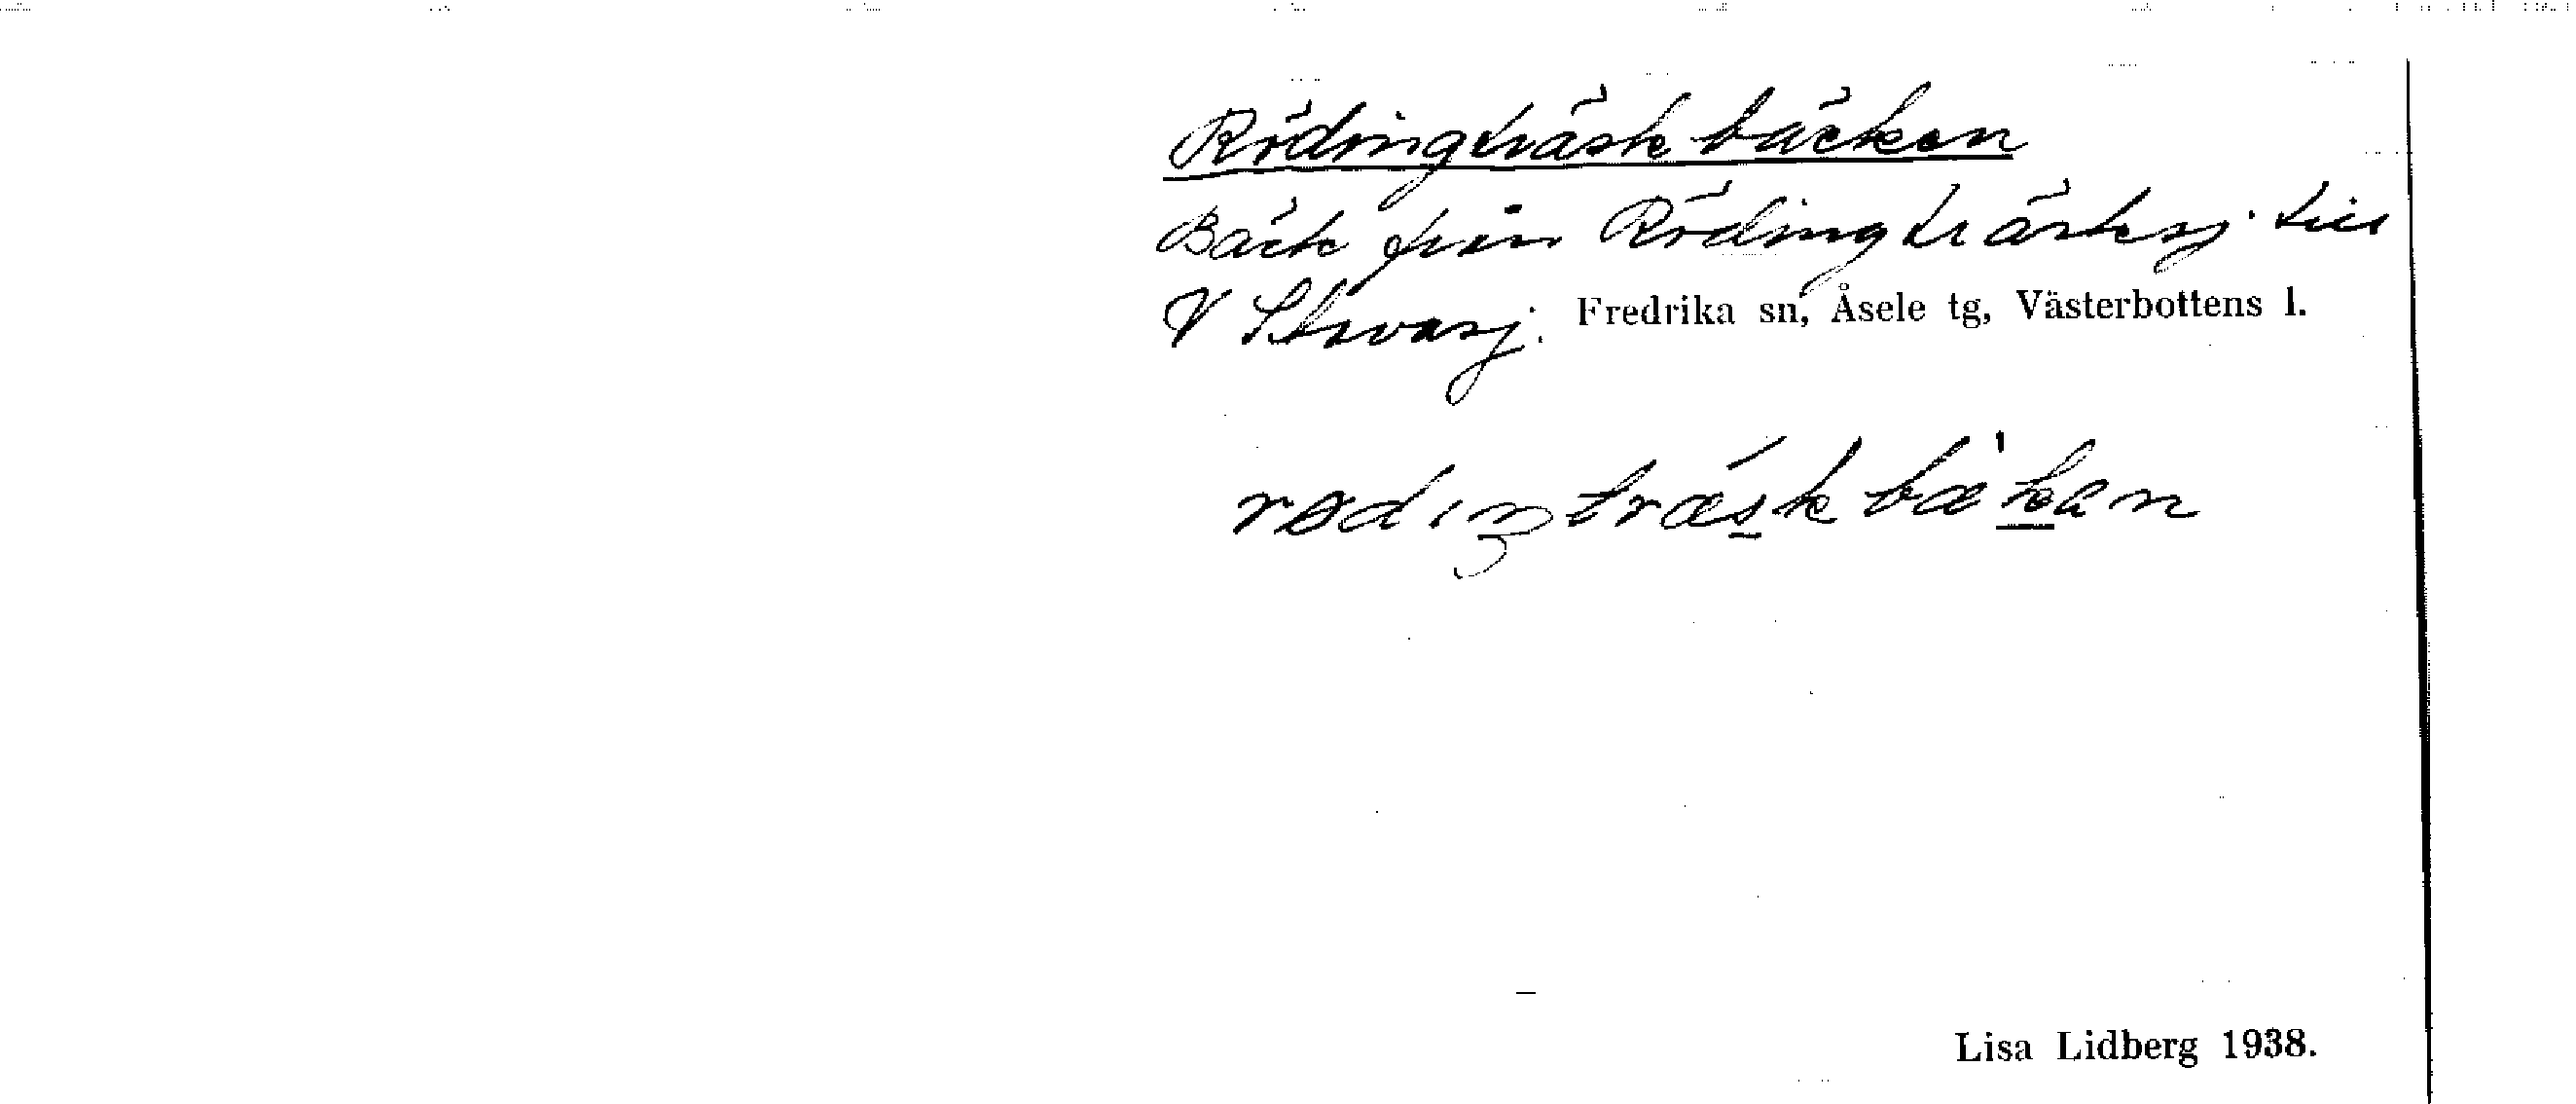 Rödingträskbäcken
Bäck från Rödingträsksj. till
V Strvasj. Fredrika sn, Åsele tg, Västerbottens l.
rødıŋtræskbækan
Lisa Lidberg 1938.